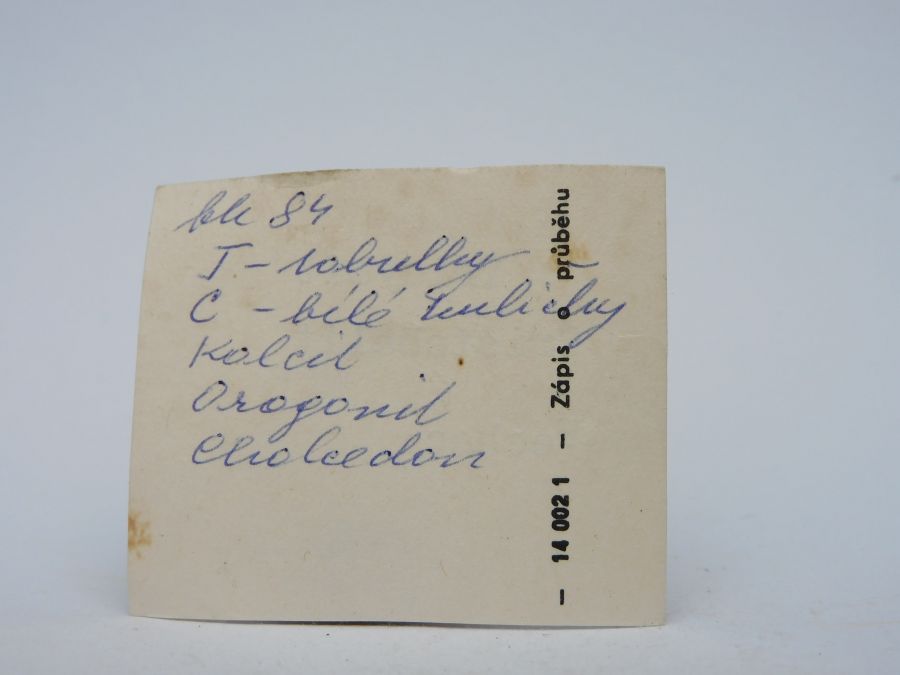 84
T -
C - bílé kuličky
Kalcit
Aragonit
Chalcedon
– 14 002 1 – Zápis o průběhu